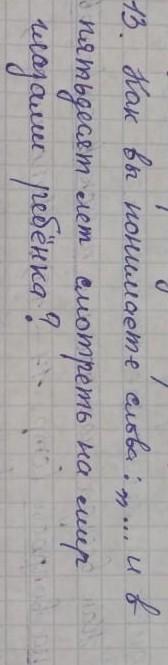 13. Как вы понимаете слова: „... и в
пятьдесят лет смотреть на мир
глазами ребёнка?